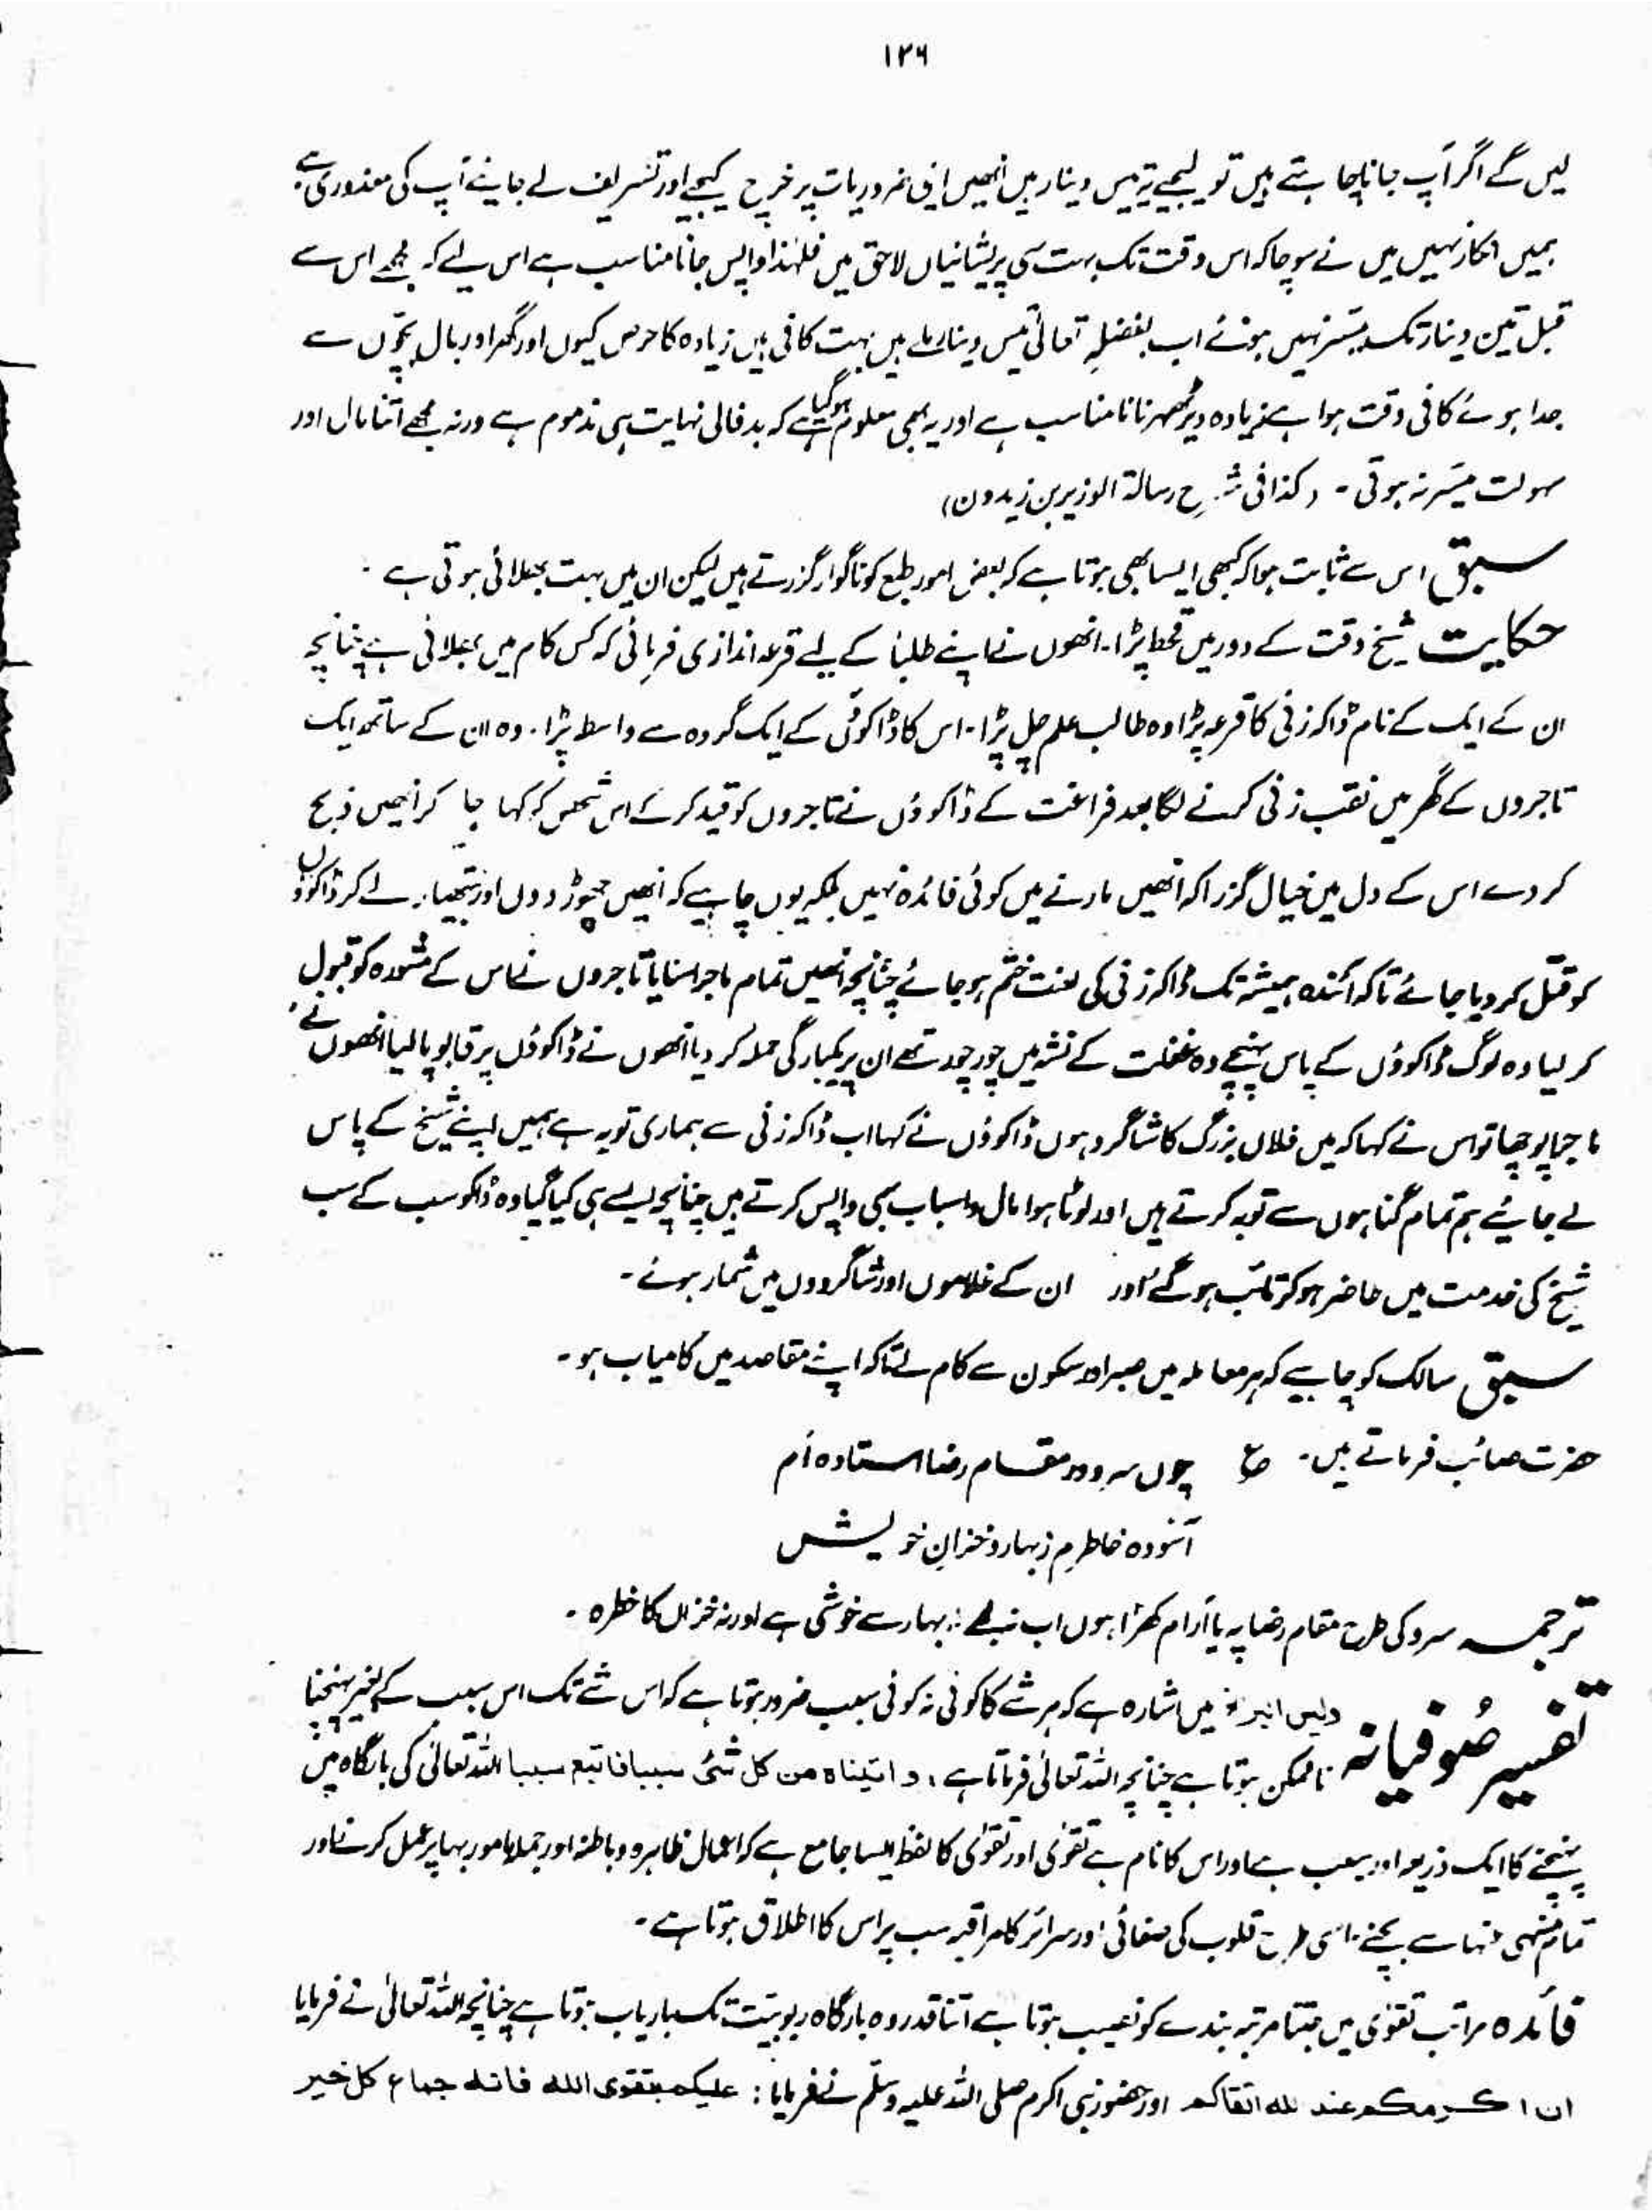 ۱۲۶
لیں گے اگر آپ جانا چاہتے ہیں تو لیجیے تیس دینار ہیں انھیں اپنی ضروریات پر خرچ کیجیے اور تشریف لے جایئے آپ کی معذوری ہے
ہمیں انکار نہیں میں نے سوچا کہ اس وقت تک بہت سی پریشانیاں لاحق ہیں فلہٰذا واپس جانا مناسب ہے اس لیے کہ مجھے اس سے
قبل تین دینار تک میسّر نہیں ہوئے اب بفضلہٖ تعالیٰ تیس دینار ملے ہیں بہت کافی ہیں زیادہ کا حرص کیوں اور گھر اور بال بچّوں سے
جدا ہوئے کافی وقت ہوا ہے زیادہ دیر ٹھہرنا نامناسب ہے اور یہ بھی معلوم ہوگیا ہے کہ بدفالی نہایت ہی مذموم ہے ورنہ مجھے اتنا مال اور
سہولت میسّر نہ ہوتی ۔ (کذا فی شرح رسالۃ الوزیر بن زیدون)
سبق اس سے ثابت ہوا کہ کبھی ایسا بھی ہوتا ہے کہ بعض امور طبع کو ناگوار گزرتے ہیں لیکن ان میں بہت بھلائی ہوتی ہے ۔
حکایت شیخ وقت کے دور میں قحط پڑا ۔ انھوں نے اپنے طلبا کے لیے قرعہ اندازی فرمائی کہ کس کام میں بھلائی ہے چنانچہ
ان کے ایک کے نام ڈاکہ زنی کا قرعہ پڑا وہ طالب علم چل پڑا ۔ اس کا ڈاکوؤں کے ایک گروہ سے واسطہ پڑا ۔ وہ ان کے ساتھ ایک
تاجروں کے گھر میں نقب زنی کرنے لگا بعد فراغت کے ڈاکوؤں نے تاجروں کو قید کر کے اس شخص کو کہا جا کر انھیں ذبح
کر دے اس کے دل میں خیال گزرا کہ انھیں مارنے میں کوئی فائدہ نہیں بلکہ یوں چاہیے کہ انھیں چھوڑ دوں اور ہتھیار لے کر ڈاکوؤں
کو قتل کر دیا جائے تاکہ آئندہ ہمیشہ تک ڈاکہ زنی کی لعنت ختم ہو جائے چنانچہ انھیں تمام ماجرا سنایا تاجروں نے اس کے مشورہ کو قبول
کر لیا وہ لوگ ڈاکوؤں کے پاس پہنچے وہ غفلت کے نشہ میں چور چور تھے ان پر یکبارگی حملہ کر دیا انھوں نے ڈاکوؤں پر قابو پا لیا انھوں نے
ماجرا پوچھا تو اس نے کہا کہ میں فلاں بزرگ کا شاگرد ہوں ڈاکوؤں نے کہا اب ڈاکہ زنی سے ہماری توبہ ہے ہمیں اپنے شیخ کے پاس
لے جایئے ہم تمام گناہوں سے توبہ کرتے ہیں اور لوٹا ہوا مال و اسباب بھی واپس کرتے ہیں چنانچہ ایسے ہی کیا گیا وہ ڈاکو سب کے سب
شیخ کی خدمت میں حاضر ہو کر تائب ہو گئے اور ان کے غلاموں اور شاگردوں میں شمار ہوئے ۔
سبق سالک کو چاہیے کہ ہر معاملہ میں صبر اور سکون سے کام لے تاکہ اپنے مقاصد میں کامیاب ہو ۔
حضرت صائب فرماتے ہیں ۔ ؏ چوں سرو در مقام رضا استادہ ام
آسودہ خاطرم ز بہار و خزانِ خویش
ترجمہ سرو کی طرح مقام رضا پہ با آرام کھڑا ہوں اب نہ مجھے بہار سے خوشی ہے اور نہ خزاں کا خطرہ ۔
تفسیر صوفیانہ ولیس البر الخ میں اشارہ ہے کہ ہر شے کا کوئی نہ کوئی سبب ضرور ہوتا ہے کہ اس شے تک اس سبب کے بغیر پہنچنا
ناممکن ہوتا ہے چنانچہ اللہ تعالیٰ فرماتا ہے ، و اتیناہ من کل شئ سببا فاتبع سببا اللہ تعالیٰ کی بارگاہ میں
پہنچنے کا ایک ذریعہ اور سبب ہے اور اس کا نام ہے تقوٰی اور تقوٰی کا لفظ ایسا جامع ہے کہ اعمال ظاہرہ و باطنہ اور جملہ مامور بہا پر عمل کرنے اور
تمام منہی عنہا سے بچنے ۔ اسی طرح قلوب کی صفائی اور سرائر کا مراقبہ سب پر اس کا اطلاق ہوتا ہے ۔
فائدہ مراتب تقوٰی میں جتنا مرتبہ بندے کو نصیب ہوتا ہے اتنا قدر وہ بارگاہ ربوبیّت تک باریاب ہوتا ہے چنانچہ اللہ تعالیٰ نے فرمایا
ان اکرمکم عند للہ اتقاکم اور حضور نبی اکرم صلی اللہ علیہ وسلّم نے فرمایا : علیکم بتقوی اللہ فانہ جماع کل خیر